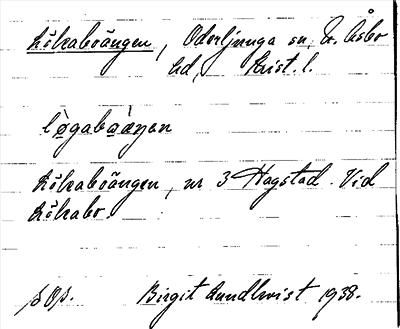 Lökaboängen, Oderljunga sn, V. Åsbo
hd, Krist. l.
Lökaboängen, nr 3 Hagstad. Vid
Lökabo.
Birgit Lundkvist 1938.